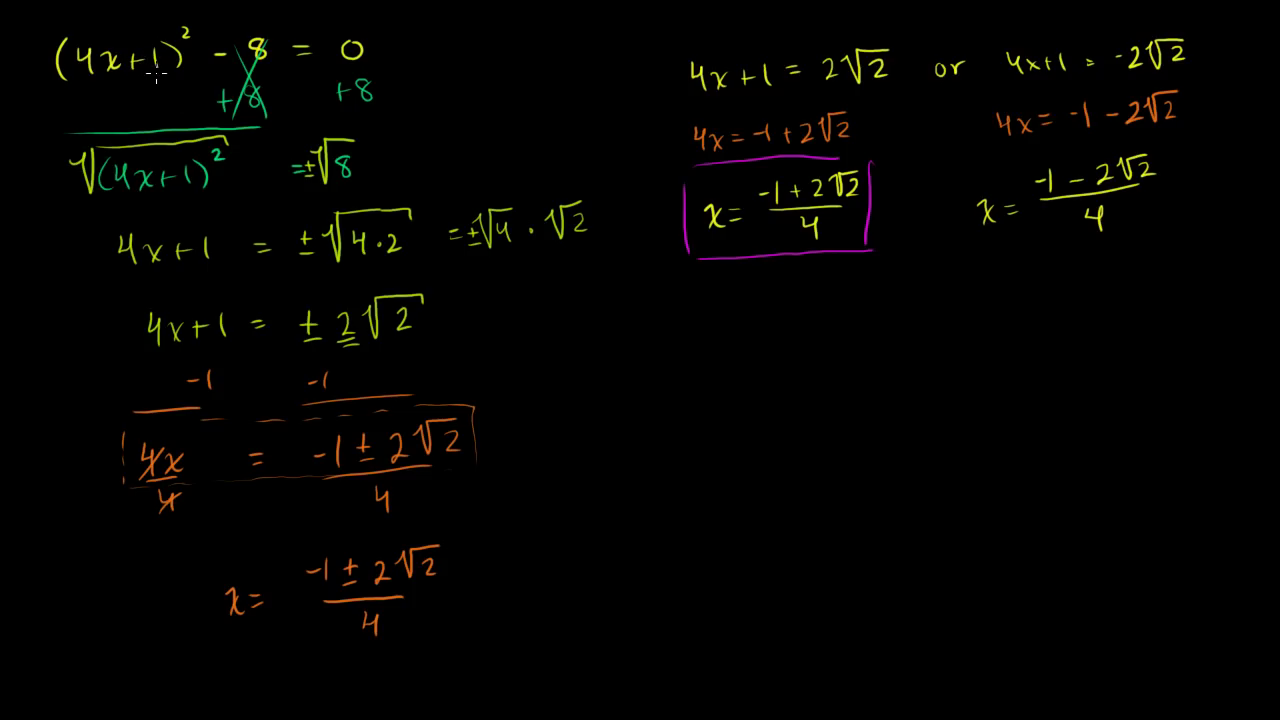 (4x+1)² - 8 = 0
+8 +8
√(4x+1)² = ±√8
4x+1 = ±√4·2 = ±√4 · √2
4x+1 = ± 2√2
-1 -1
4x = -1 ± 2√2
4 4
x = -1 ± 2√2
4
4x+1 = 2√2 or 4x+1 = -2√2
4x = -1 + 2√2 4x = -1 - 2√2
x = -1 + 2√2 x = -1 - 2√2
4 4